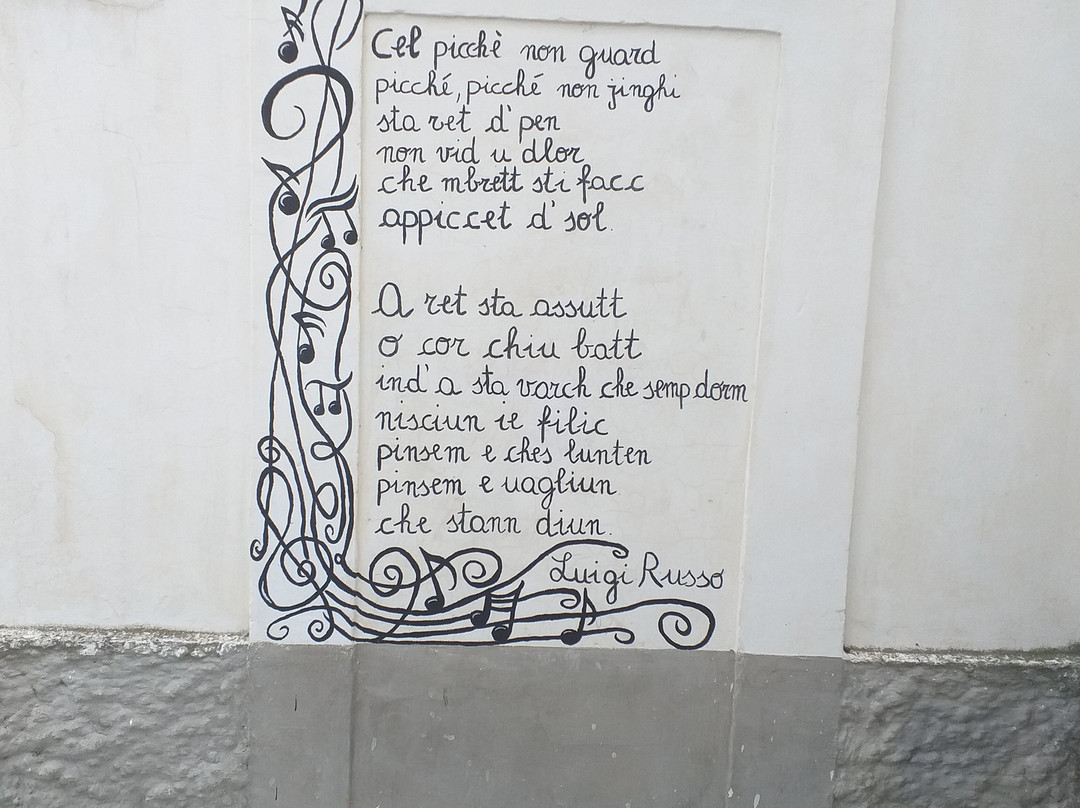 Cel picchè non guard
picché, picché non jinghi
sta ret d' pen
non vid u dlor
che mbrett sti facc
appiccet d' sol.
A ret sta assutt
o' cor chiu batt
ind' a sta varch che semp dorm
nisciun ie filic
pinsem e ches lunten
pinsem e uagliun
che stann diun.
Luigi Russo